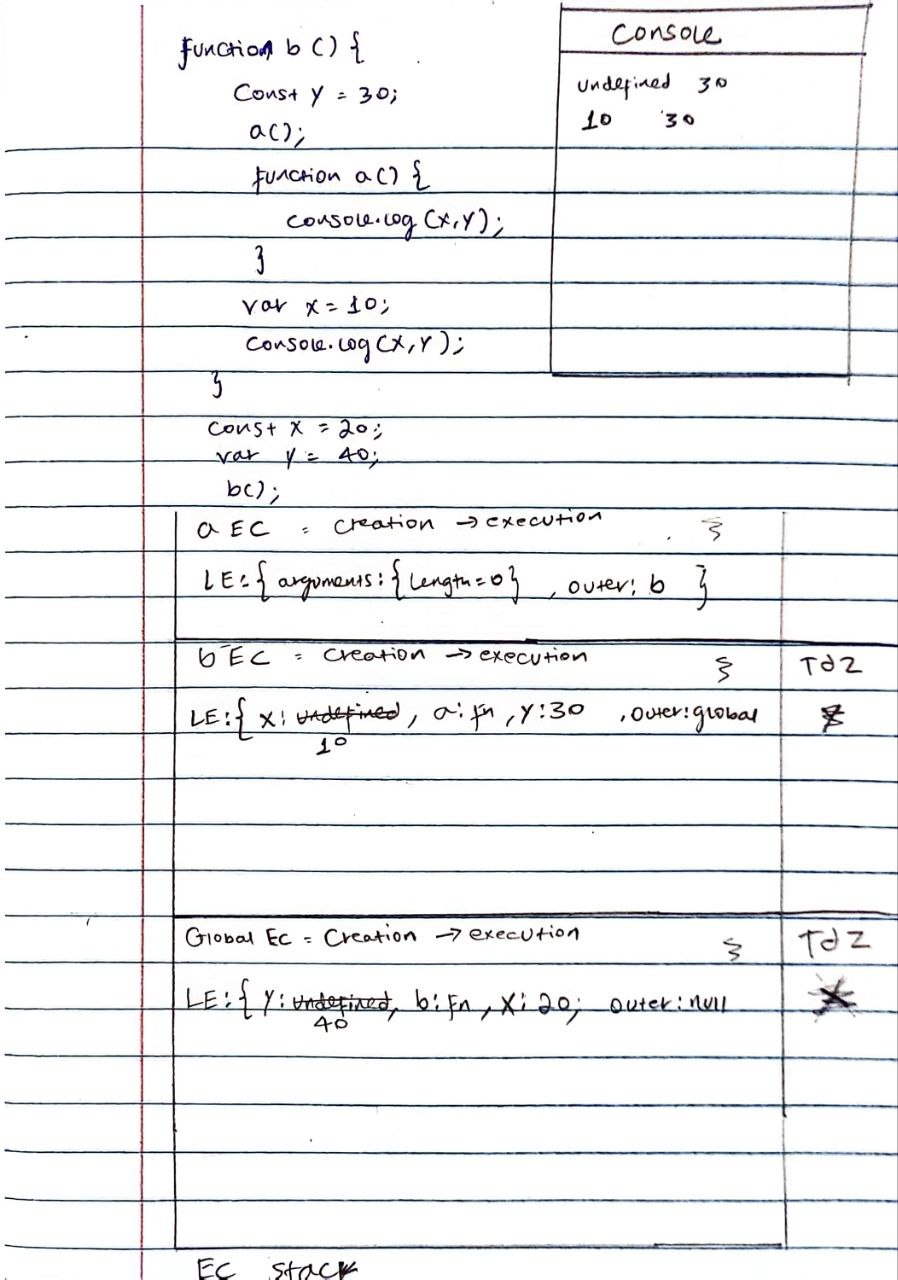 function b () {
Const y = 30;
a();
function a() {
console.log (x,y);
}
var x = 10;
console.log (x,y);
}
const x = 20;
var y = 40;
b();
Console
undefined 30
10 30
a EC = Creation → execution }
LE:{ arguments:{ Length=0} , outer: b }
b EC = Creation → execution } Tdz
LE:{ x: undefined, a: fn , y:30 , outer:global
10
Global Ec = Creation → execution } Tdz
LE:{ y: undefined, b: fn , x: 20; outer: null
40
EC stack